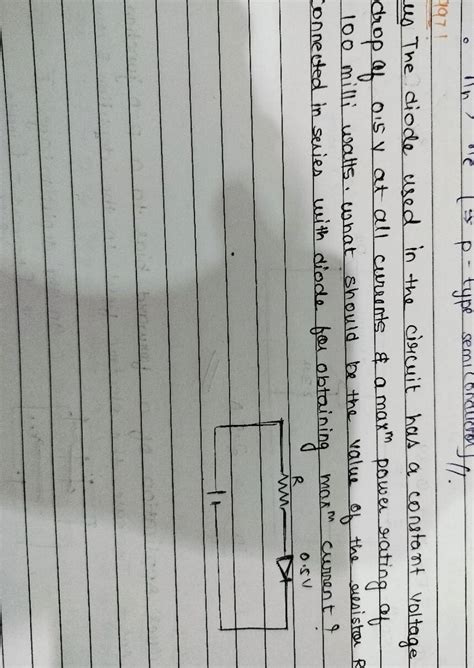 ∴ n >> ne (⇒ p-type semiconductor)//.
1997 !
Ques The diode used in the circuit has a constant voltage
drop of 0.5 V at all currents & a maxᵐ power rating of
100 milli watts. what should be the value of the resistor R
connected in series with diode for obtaining maxᵐ current ?
R
0.5V